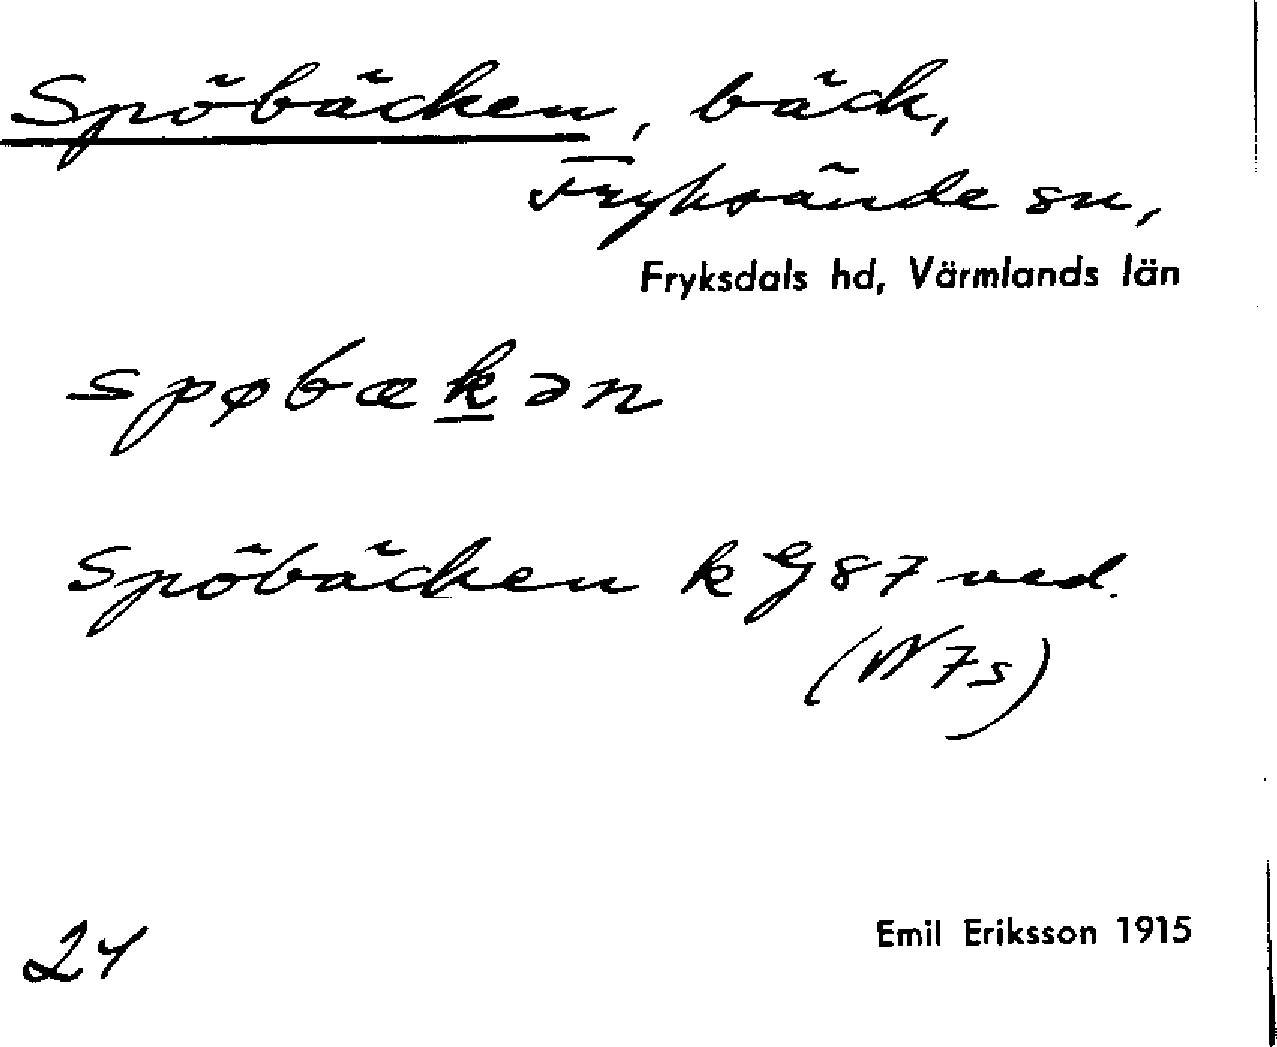 Spöbäcken, bäck,
Fryksände sn,
Fryksdals hd, Värmlands län
spøbækən
Spöbäcken k G 87 ved.
(W 7s)
24
Emil Eriksson 1915